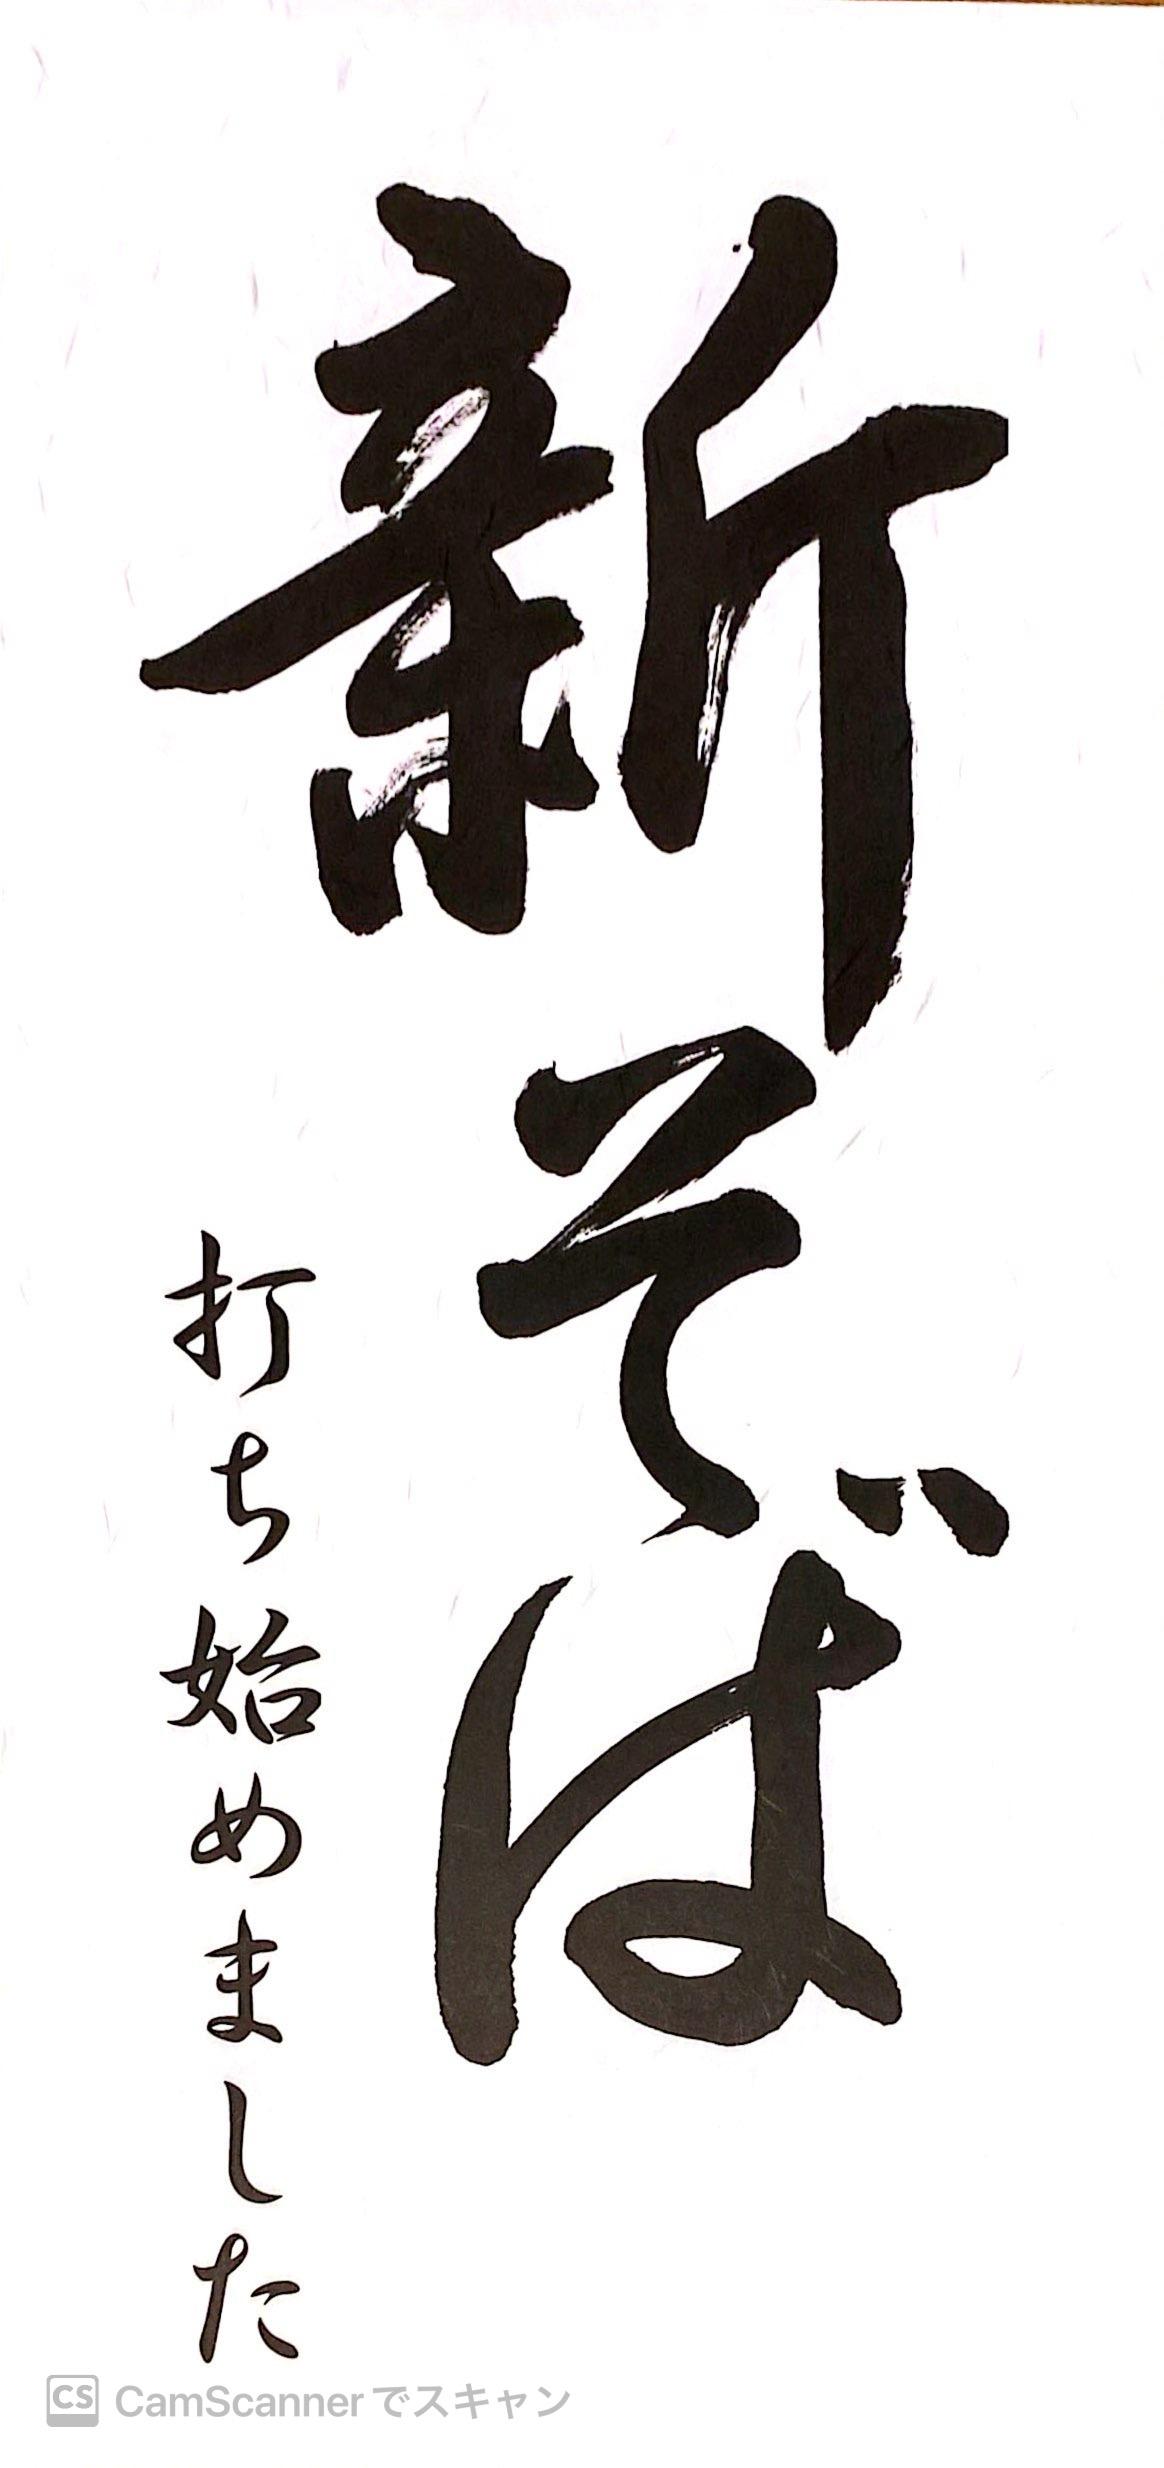 新そば
打ち始めました
CS CamScannerでスキャン